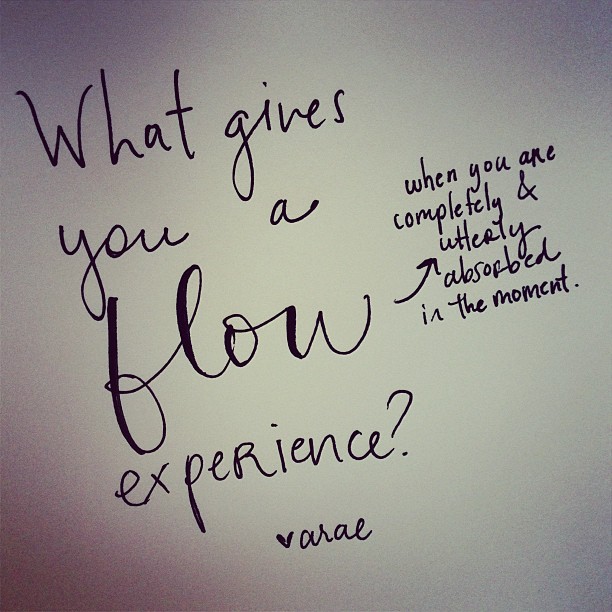 What gives
you a
flow
experience?
when you are
completely &
utterly
absorbed
in the moment.
♥arae